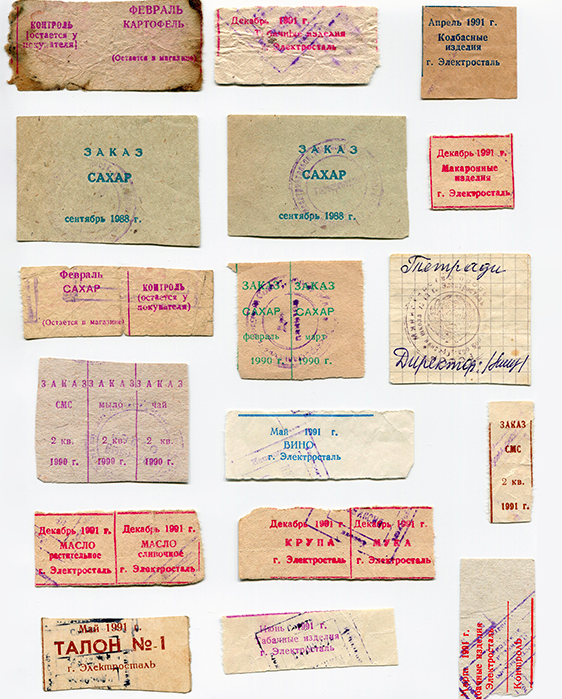 КОНТРОЛЬ
(остается у
покупателя)
ФЕВРАЛЬ
КАРТОФЕЛЬ
(Остается в магазине)
Декабрь 1991 г.
Табачные изделия
г. Электросталь
Апрель 1991 г.
Колбасные
изделия
г. Электросталь
ЗАКАЗ
САХАР
сентябрь 1988 г.
ЗАКАЗ
САХАР
сентябрь 1988 г.
Декабрь 1991 г.
Макаронные
изделия
г. Электросталь
Февраль
САХАР
(Остается в магазине)
КОНТРОЛЬ
(остается у
покупателя)
ЗАКАЗ
САХАР
февраль
1990 г.
ЗАКАЗ
САХАР
март
1990 г.
Тетради
Директор:
ЗАКАЗ
СМС
2 кв.
1990 г.
ЗАКАЗ
мыло
2 кв.
1990 г.
ЗАКАЗ
чай
2 кв.
1990 г.
Май 1991 г.
ВИНО
г. Электросталь
ЗАКАЗ
СМС
2 кв.
1991 г.
Декабрь 1991 г.
МАСЛО
растительное
г. Электросталь
Декабрь 1991 г.
МАСЛО
сливочное
г. Электросталь
Декабрь 1991 г.
КРУПА
г. Электросталь
Декабрь 1991 г.
МУКА
г. Электросталь
Май 1991 г.
ТАЛОН №1
г. Электросталь
Июнь 1991 г.
Табачные изделия
г. Электросталь
1991 г.
изделия
Электросталь
Контроль